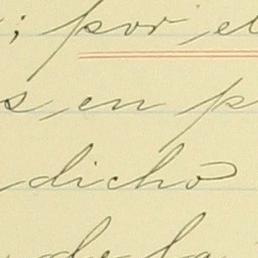 ; por el
s, en p
dicho
de la